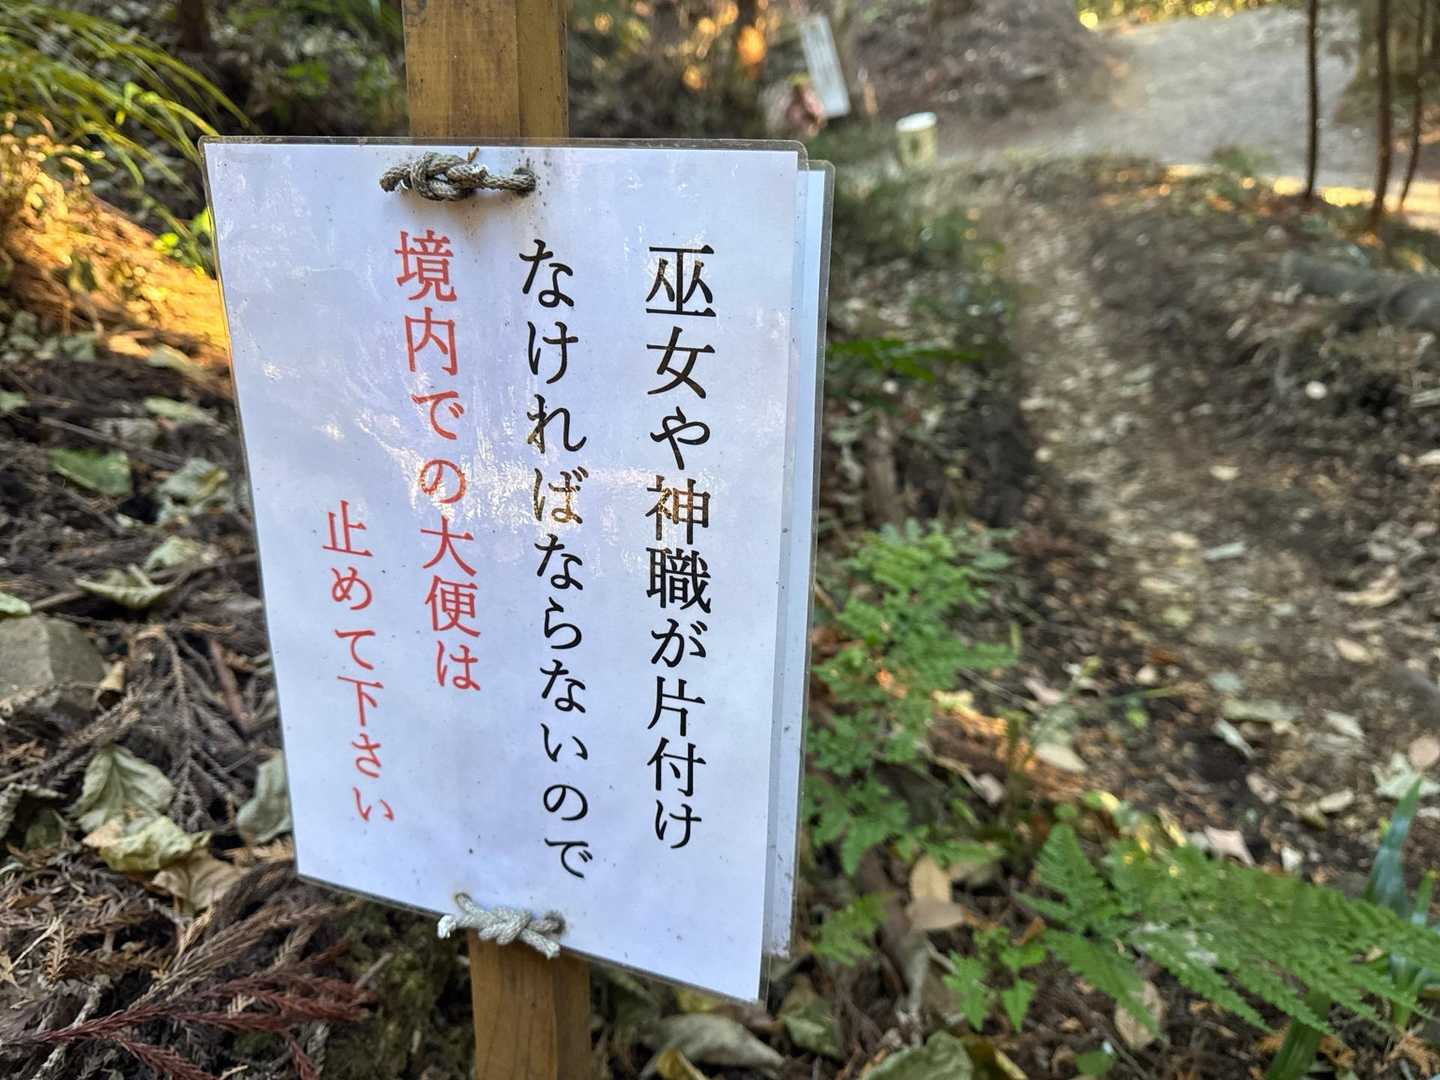 巫女や神職が片付け
なければならないので
境内での大便は
止めて下さい